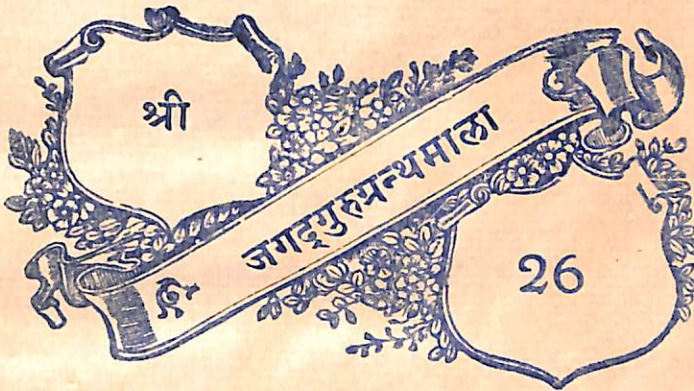 श्री
जगद्गुरुग्रन्थमाला
26